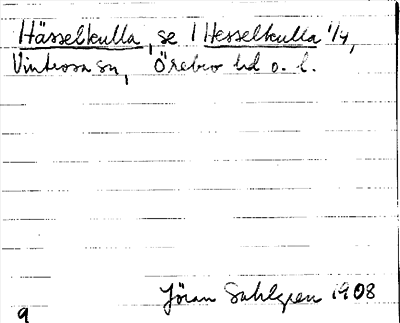 Hässelkulla, se 1 Hesselkulla 1/4,
Vintrosa sn, Örebro hd o. l.
Jöran Sahlgren 1908
9